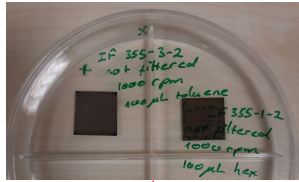 X
IF 355-3-2
* not filtered
1000 rpm
100 µL toluene
IF 355-1-2
not filtered
1000 rpm
100 µL hex